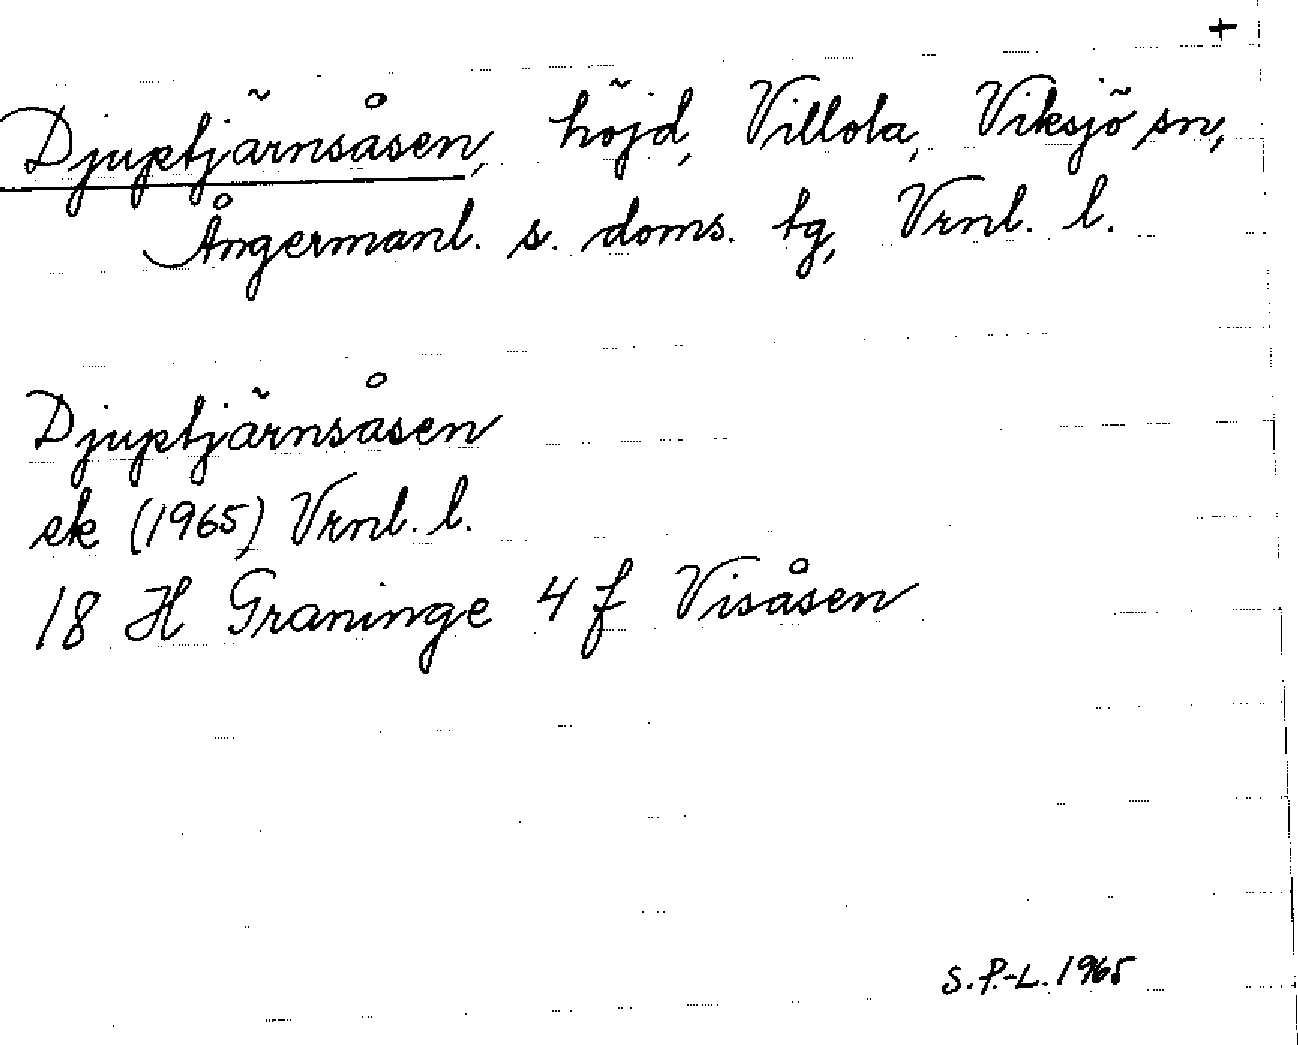 +
Djuptjärnsåsen, höjd, Villola, Viksjö sn,
Ångermanl. s. doms. tg, Vrnl. l.
Djuptjärnsåsen
ek (1965) Vrnl. l.
18 H Graninge 4 f Visåsen
S.P.-L. 1965